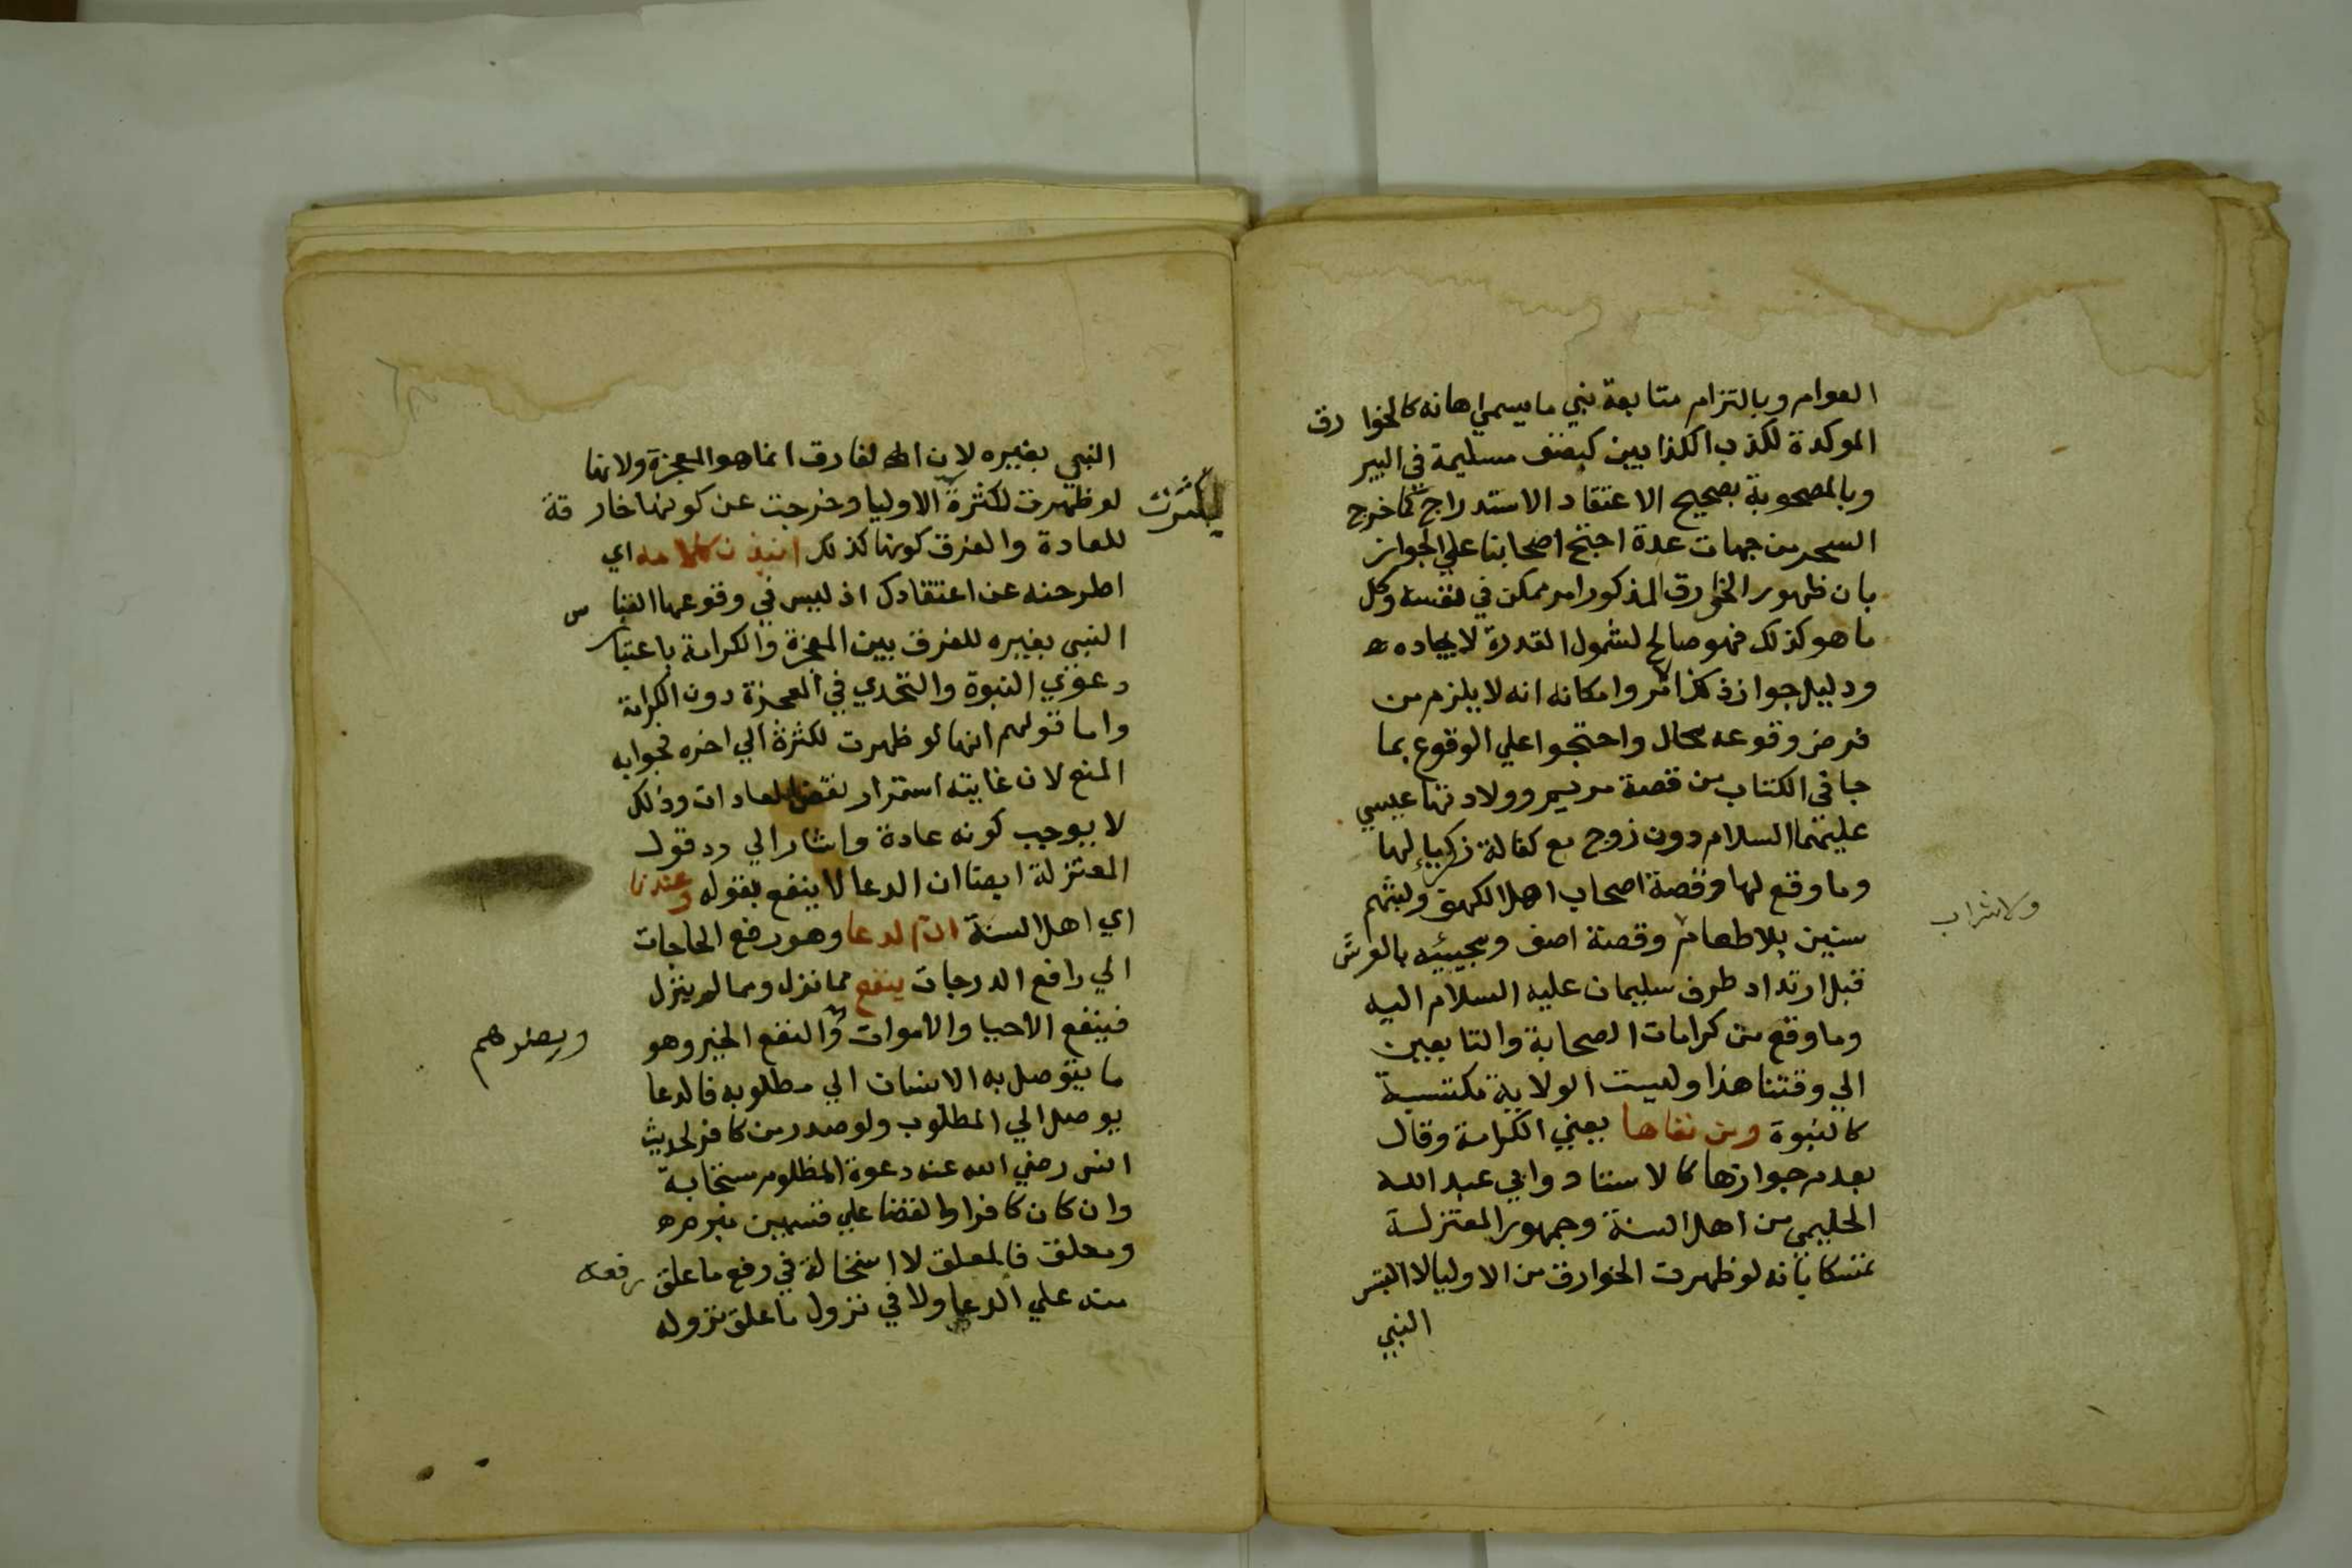 العوام وبالتزام متابعة نبي ما يسمي اهانه كالخوارق
الموكدة لكذب الكذابين كبصق مسليمة في البير
وبالمصحوبة بصحيح الاعتقاد الاستدراج كما خرج
السحر من جهات عدة احتج اصحابنا علي الجواز
بان ظهور الخارق المذكور امر ممكن في نفسه وكل
ما هو كذلك فهو صالح لشمول القدرة لايجاده
ودليل جواز ذكر وامكانه انه لا يلزم من
فرض وقوعه محال واحتجوا علي الوقوع بما
جا في الكتاب من قصة مريم وولادتها عيسي
عليهما السلام دون زوج مع كفالة زكريا لها
وما وقع لها وقصة اصحاب اهل الكهف ولبثهم
سنين بلا طعام وقصة اصف ومجييه بالعرش
ولا شراب
قبل ارتداد طرف سليمان عليه السلام اليه
وما وقع من كرامات الصحابة والتابعين
الي وقتنا هذا وليست الولاية مكتسبة
كالنبوة ومن نفاها يعني الكرامة وقال
بعدم جوازها كالاستاد وابي عبد الله
الحليمي من اهل السنة وجمهور المعتزلة
تمسكا بانه لو ظهرت الخوارق من الاوليا لالتبس
النبي
النبي بغيره لان الفارق انما هو المعجزة ولانها
لو ظهرت لكثرة الاوليا وخرجت عن كونها خارقة
لكثرت
للعادة والفرق كونها كذلك انبذن كلامه اي
اطرحنه عن اعتقادك اذ ليس في وقوعها التباس
النبي بغيره للفرق بين المعجزة والكرامة باعتبار
دعوي النبوة والتحدي في المعجزة دون الكرامة
واما قولهم انها لو ظهرت لكثرة الي اخره فجوابه
المنع لان غايته استمرار نقض العادات وذلك
لا يوجب كونه عادة واشار الي رد قول
المعتزلة ايضا ان الدعا لا ينفع بقوله وعندنا
اي اهل السنة ان الدعا وهو رفع الحاجات
الي رافع الدرجات ينفع مما نزل ومما لم ينزل
فينفع الاحيا والاموات والنفع الخير وهو
ويضرهم
ما يتوصل به الانسان الي مطلوبه فالدعا
يوصل الي المطلوب ولو صدر من كافر لحديث
انس رضي الله عنه دعوة المظلوم مستجابة
وان كان كافرا والقضا علي قسمين مبرم
ومعلق فالمعلق لا استحالة في رفع ما علق رفعه
منه علي الدعا ولا في نزول ما علق نزوله